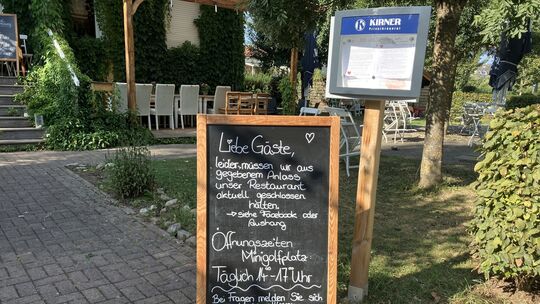 KIRNER
Privatbrauerei
Liebe Gäste, ♡
leider müssen wir aus
gegebenem Anlass
unser Restaurant
aktuell geschlossen
halten.
→ siehe Facebook oder
Aushang
Öffnungszeiten
Minigolfplatz:
Täglich 14⁰⁰-17 Uhr
Bei Fragen melden Sie sich